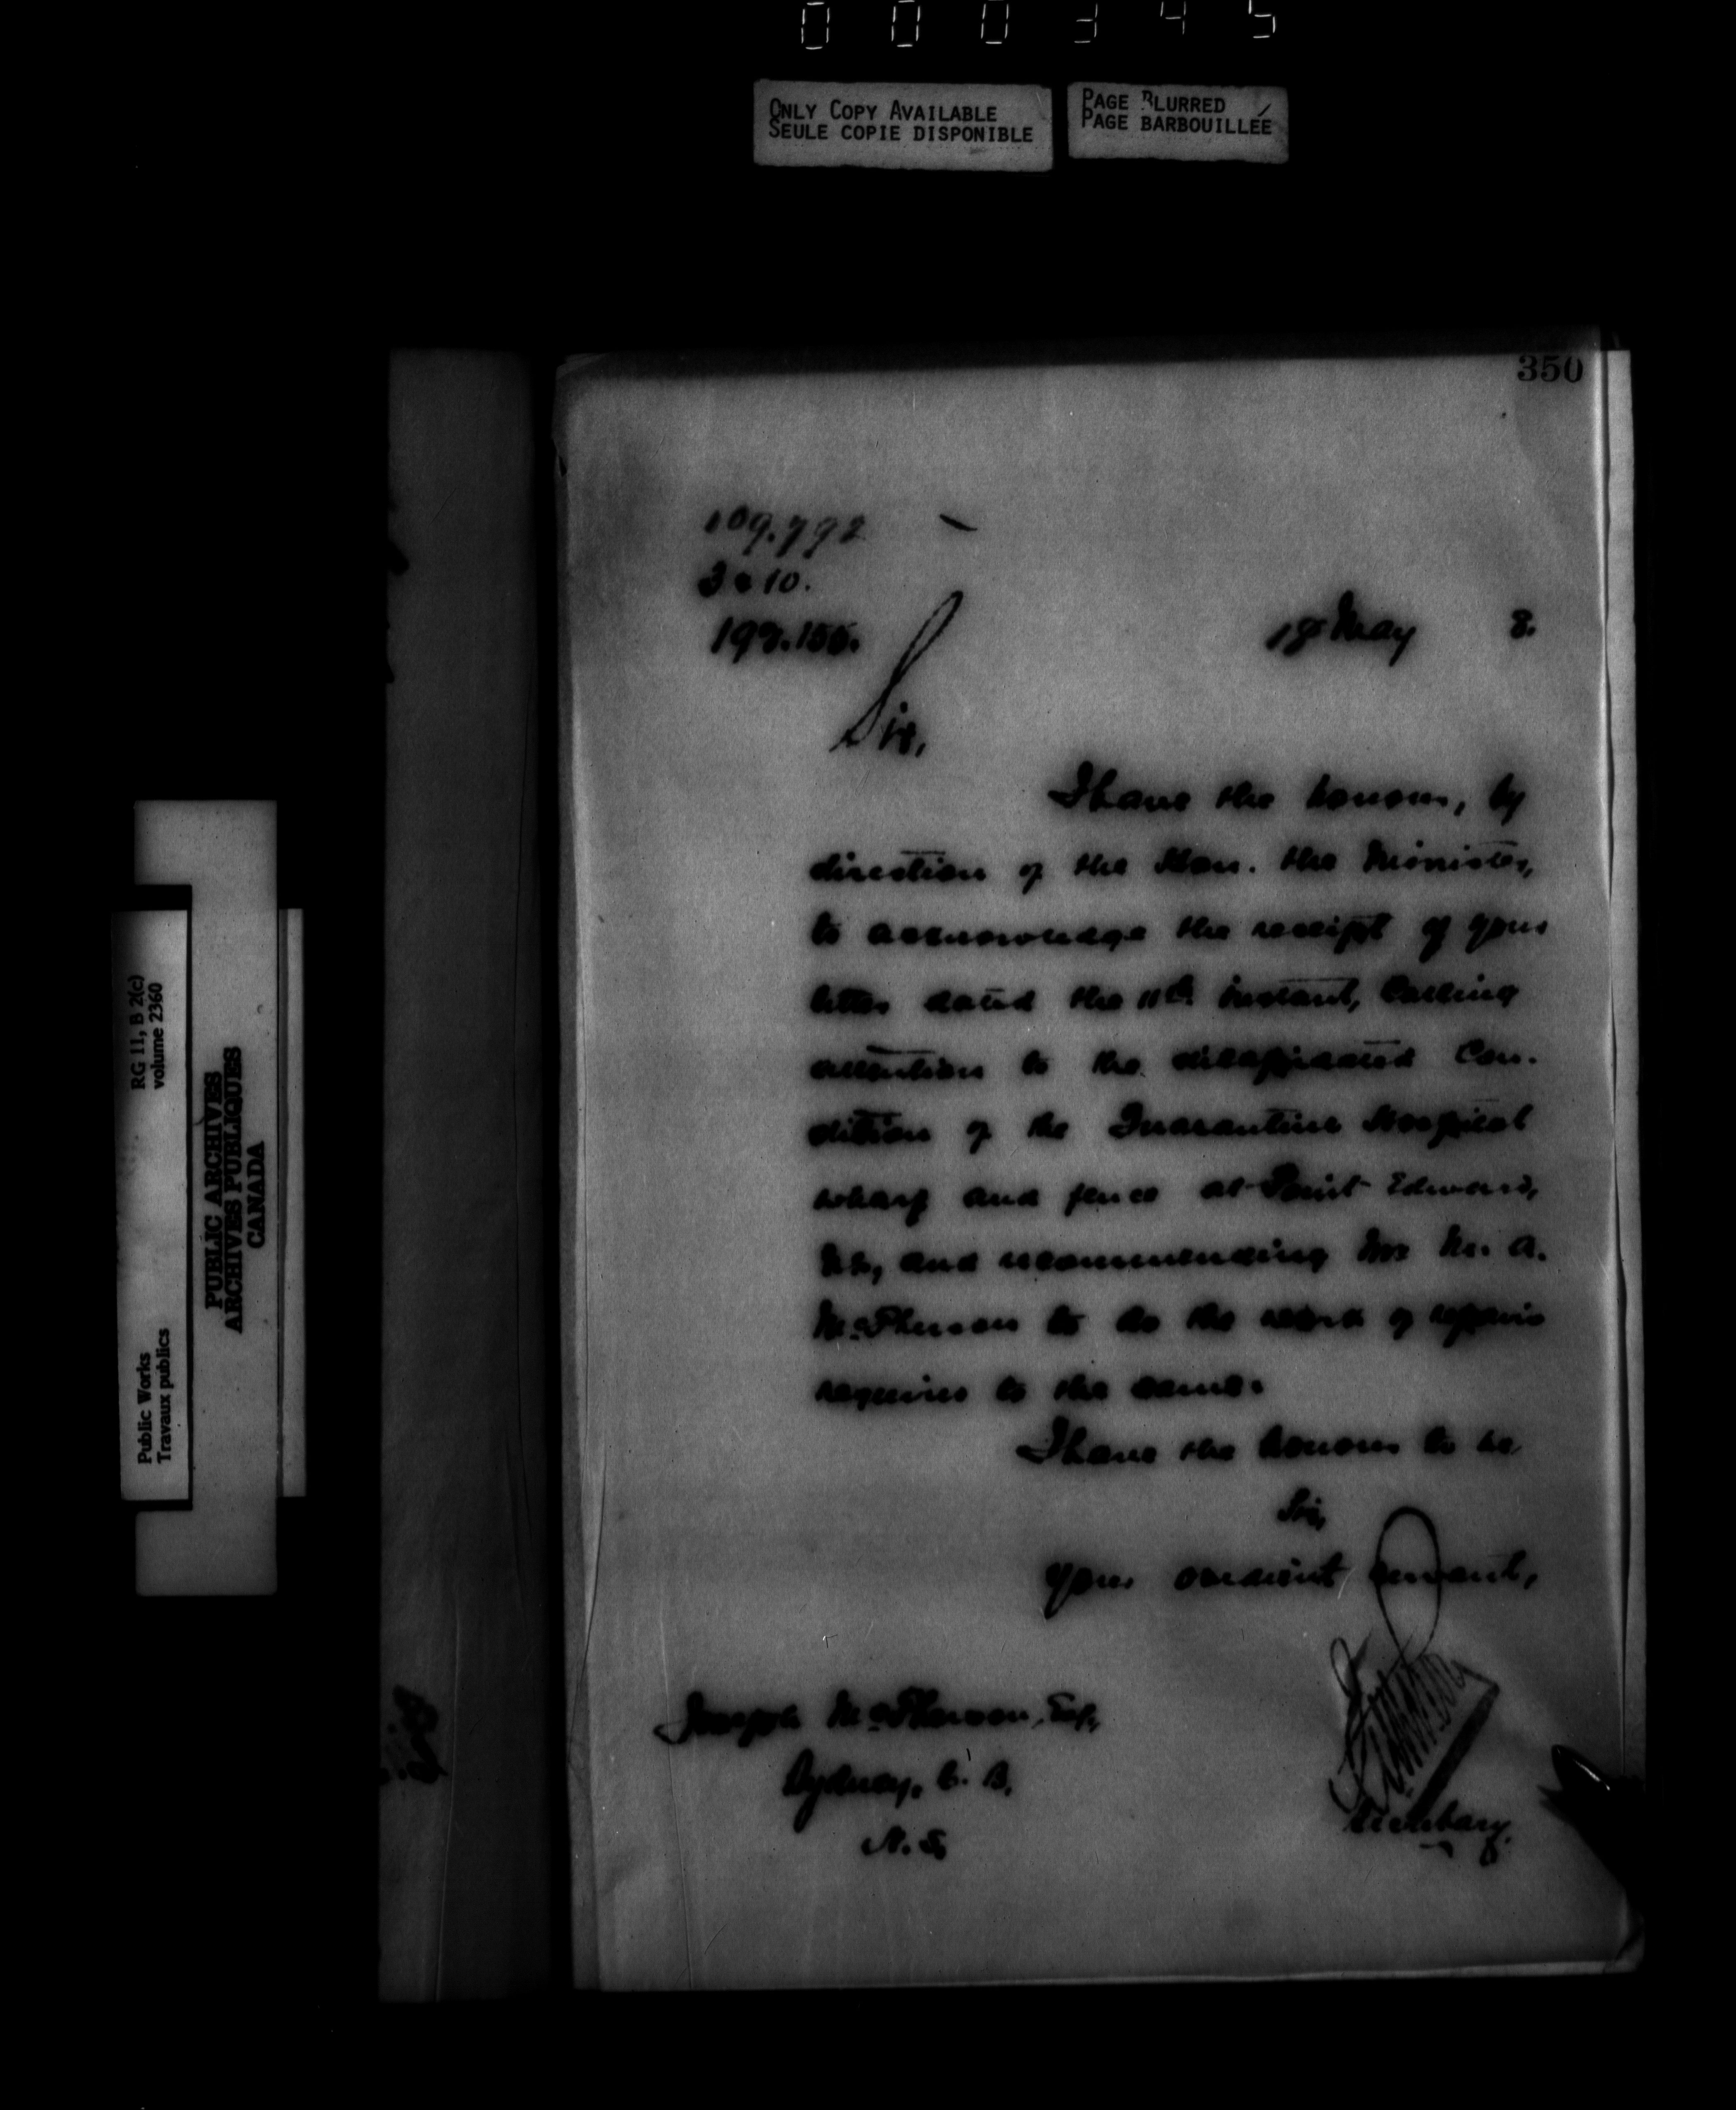 000345
ONLY COPY AVAILABLE
SEULE COPIE DISPONIBLE
PAGE BLURRED
PAGE BARBOUILLÉE
350
109.792
3 & 10.
193.155.
18 May 8.
Sir,
I have the honour, by
direction of the Hon. the Minister,
to acknowledge the receipt of your
letter dated the 11th instant, calling
attention to the dilapidated con-
dition of the Quarantine Hospital
wharf and fence at Point Edward,
and recommending Mr. M. A.
McPherson to do the work of repairs
required to the same.
I have the honour to be
Sir,
Your obedient servant,
Secretary.
Joseph McPherson, Esq.,
Sydney, C. B.
N. S.
RG 11, B 2(c)
volume 2360
PUBLIC ARCHIVES
ARCHIVES PUBLIQUES
CANADA
Public Works
Travaux publics